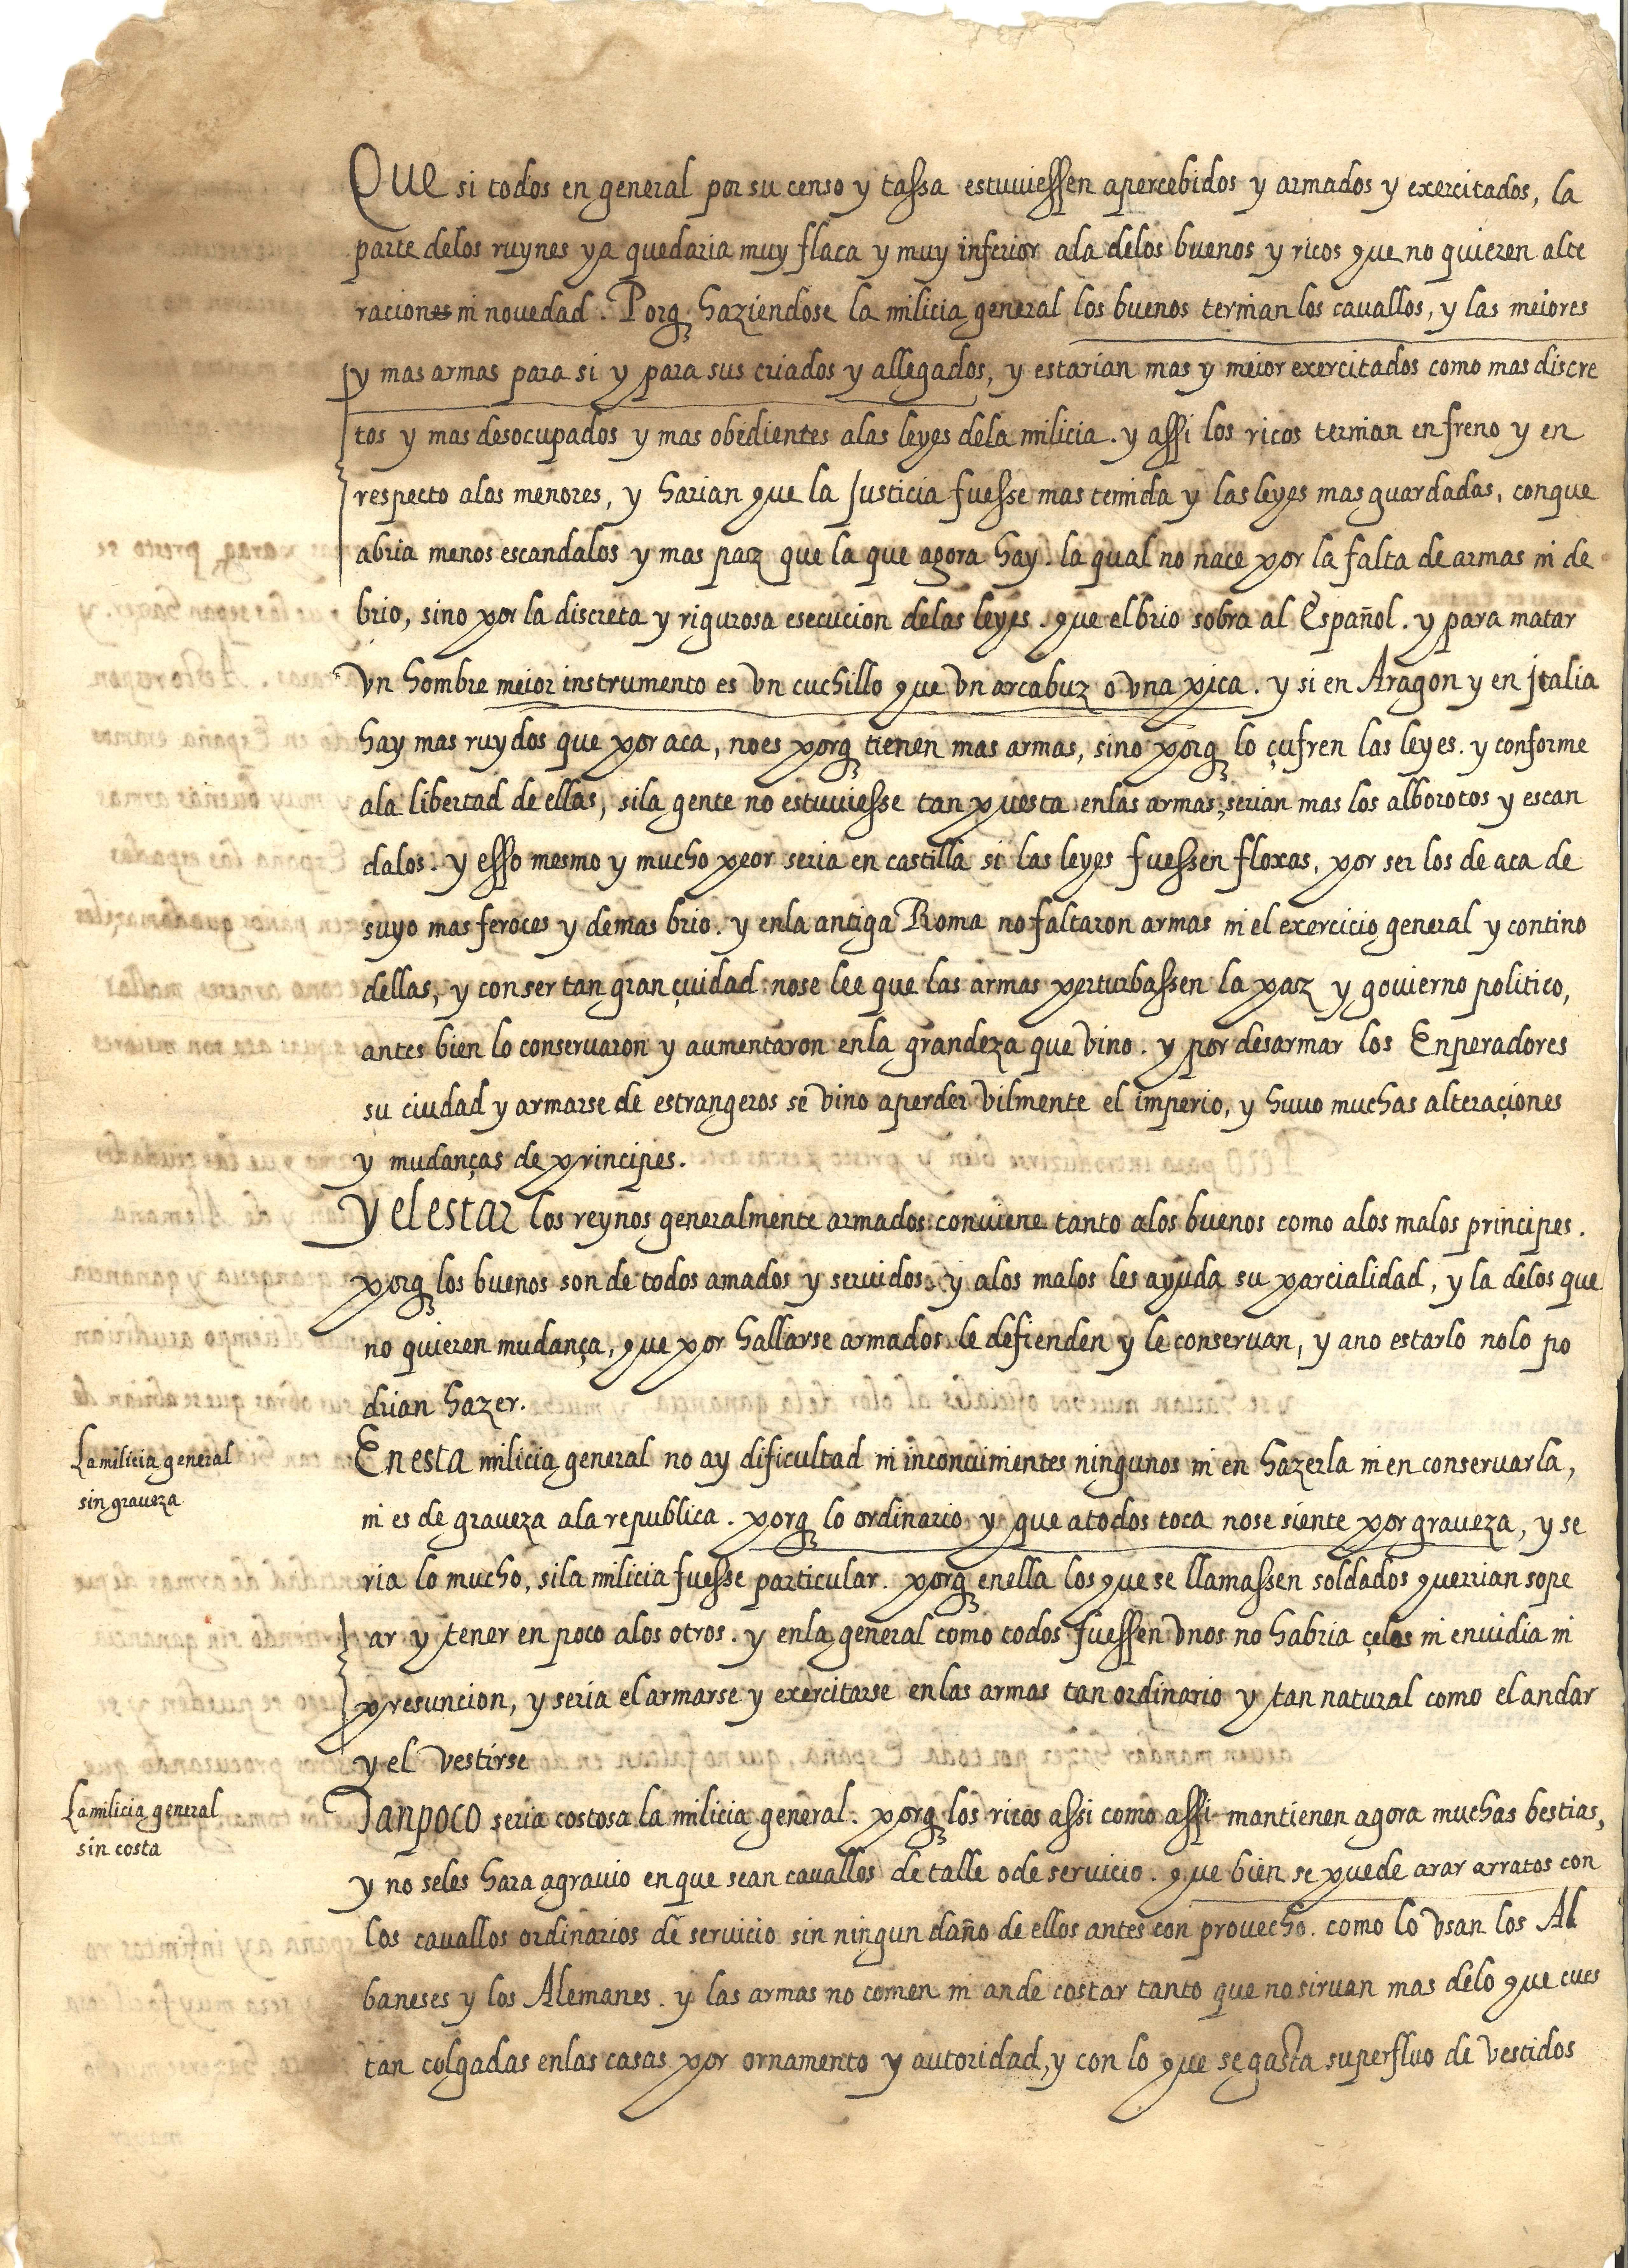 Que si todos en general por su censo y tassa estuuiessen apercebidos y armados y exercitados, la
parte delos ruynes ya quedaria muy flaca y muy inferior ala delos buenos y ricos que no quieren alte
raciones ni nouedad. Porq haziendose la milicia general los buenos ternian los cauallos, y las meiores
y mas armas para si y para sus criados y allegados, y estarian mas y meior exercitados como mas discre
tos y mas desocupados y mas obedientes alas leyes dela milicia. y assi los ricos ternian en freno y en
respecto alos menores, y harian que la Justicia fuesse mas temida y las leyes mas guardadas, conque
abria menos escandalos y mas paz que la que agora hay. la qual no nace por la falta de armas ni de
brio, sino por la discreta y rigurosa esecucion delas leyes. que el brio sobra al Español. y para matar
vn hombre meior instrumento es vn cuchillo que vn arcabuz o vna pica. y si en Aragon y en Italia
hay mas ruydos que por aca, no es porq tienen mas armas, sino porq lo çufren las leyes. y conforme
ala libertad de ellas, si la gente no estuuiesse tan puesta enlas armas, serian mas los alborotos y escan
dalos. y esso mesmo y mucho peor seria en castilla si las leyes fuessen floxas, por ser los de aca de
suyo mas feroces y demas brio. y enla antiga Roma no faltaron armas ni el exercicio general y contino
dellas, y con ser tan gran çuidad nose lee que las armas perturbassen la paz y gouierno politico,
antes bien lo conseruaron y aumentaron enla grandeza que vino. y por desarmar los Enperadores
su ciudad y armarse de estrangeros se vino aperder vilmente el imperio, y huuo muchas alteraçiones
y mudanças de principes.
Y el estar los reynos generalmente armados conuiene tanto alos buenos como alos malos principes.
porq los buenos son de todos amados y seruidos. y alos malos les ayuda su parcialidad, y la delos que
no quieren mudança, que por hallarse armados le defienden y le conseruan, y ano estarlo nolo po
drian hazer.
La milicia general
sin graueza
En esta milicia general no ay dificultad ni inconuinientes ningunos ni en hazerla ni en conseruarla,
ni es de graueza ala republica. porq lo ordinario y que atodos toca nose siente por graueza, y se
ria lo mucho, si la milicia fuesse particular. porq enella los que se llamassen soldados querrian sope
ar y tener en poco alos otros. y enla general como todos fuessen vnos no habria çelos ni enuidia ni
presuncion, y seria el armarse y exercitarse enlas armas tan ordinario y tan natural como el andar
y el vestirse
La milicia general
sin costa
Tanpoco seria costosa la milicia general. porq los ricos assi como assi mantienen agora muchas bestias,
y no seles hara agrauio en que sean cauallos de talle o de seruicio. que bien se puede arar arratos con
los cauallos ordinarios de seruicio sin ningun daño de ellos antes con prouecho. como lo vsan los Al
baneses y los Alemanes. y las armas no comen ni ande costar tanto que no siruan mas delo que cues
tan colgadas enlas casas por ornamento y autoridad, y con lo que se gasta superfluo de vestidos